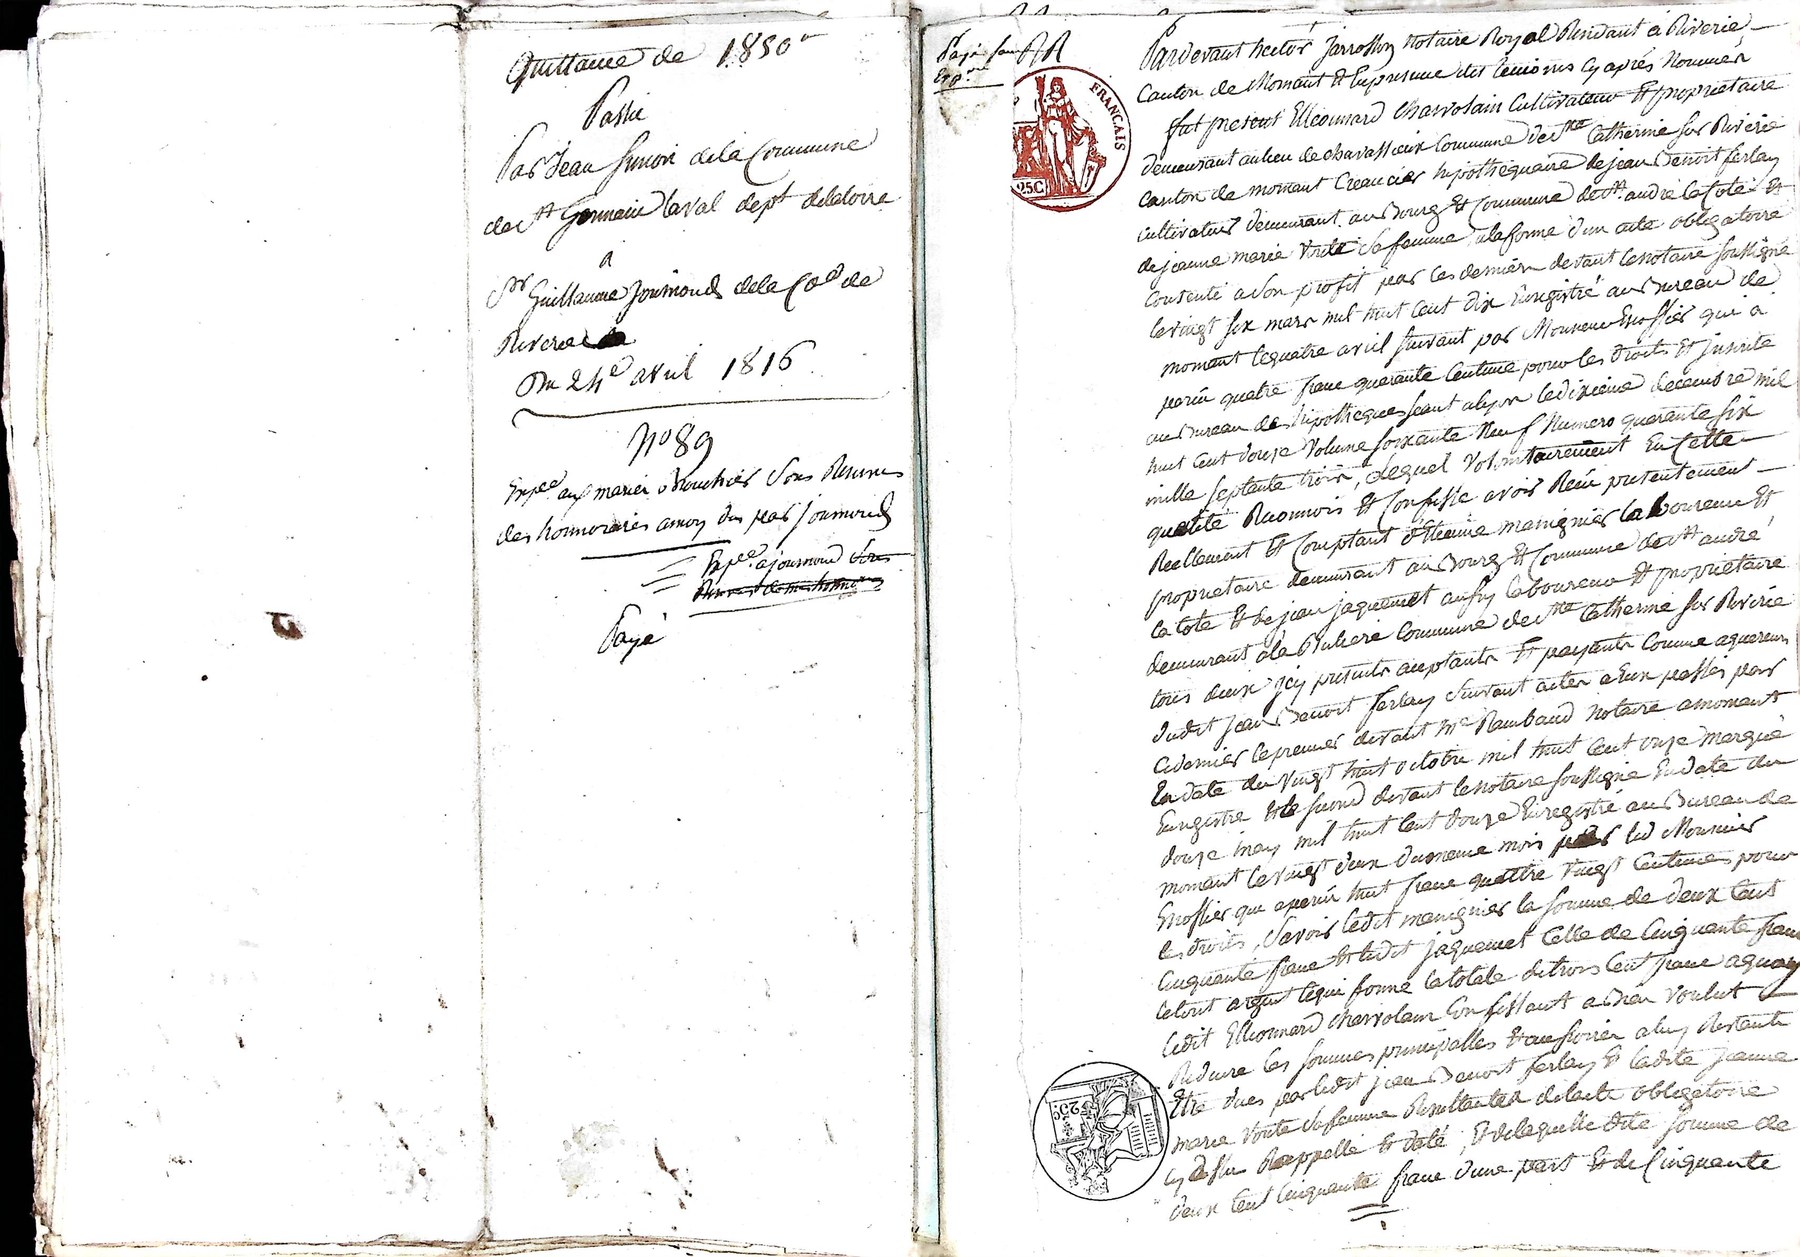 Quittance de 1850 #
Passée
Par Jean Simon de la Commune
de St Germain Laval dept de la loire
a
Sr Guillaume Joumond de la Coe de
Riverie
Du 24e avril 1816
No 89
des honnoraires a moy dus par Joumond
Expce. a joumond
Payé
Payé
Exp.
FRANCAIS
25C
Pardevant hector Jarrosson Notaire Royal Residant à Riverie,
Canton de Mornant Et En presence des temoins cy aprés Nommés
fut present Elleonnard Charvolain Cultivateur Et propriétaire
demeurant au lieu de chavassieux Commune de Ste Catherine sur Riverie
Canton de mornant Creancier hipothequaire de jean Benoit ferlay
cultivateur demeurant au Bourg Et Commune de St andré la Cote Et
de jeanne marie Voute Sa femme a la forme d'un acte obligatoire
Consenti a Son profit par ces derniers devant le notaire soussigné
le vingt six mars mil huit Cent dix Enregistré au Bureau de
mornant le quatre avril suivant par Monsieur qui a
perçu quatre franc quarante Centime pour les droits Et Inscrite
au Bureau des hipotheques seant a lyon le dixieme decembre mil
huit Cent douze Volume soixante Neuf Numero quarante six
mille septante trois, Lequel Volontairement En Cette
qualité Reconnois Et Confesse avoir Reçu presentement
Reellement Et Comptant d'Etienne manignier laboureur Et
proprietaire demeurant au Bourg Et Commune de St andré
la Cote Et de jean jaquemet aussy laboureur Et propriétaire
demeurant a la Commune de Ste Catherine sur Riverie
tous deux jcy presents acceptants Et payants Comme aquereurs
dudit jean Benoit ferlay suivant actes a Eux passés par
ce dernier le premier devant Me Raimbaud Notaire a mornant
En date du vingt huit octobre mil huit Cent onze
Enregistré Et le second devant le notaire soussigné En date du
douze may mil huit Cent douze Enregistré au Bureau de
mornant le vingt deux du meme mois par led Monsieur
qui a perçu huit franc quattre vingt Centimes pour
les droits, Savoir ledit manignier la somme de deux Cent
Cinquante franc Et ledit jaquemet Celle de Cinquante franc
le tout argent le qui forme la totale de trois Cent franc a quoy
ledit Elleonnard Charvolain Confessant a Bien Voulut
Reduire les sommes principalles Et accessoires a luy Restante
Etre dues par ledit jean Benoit ferlay Et ladite jeanne
marie Voute Sa femme Resultantes de lacte obligatoire
cy dessus Rappellé Et daté, Et de laquelle dite somme de
deux Cent Cinquante franc d'une part Et de Cinquante
25C